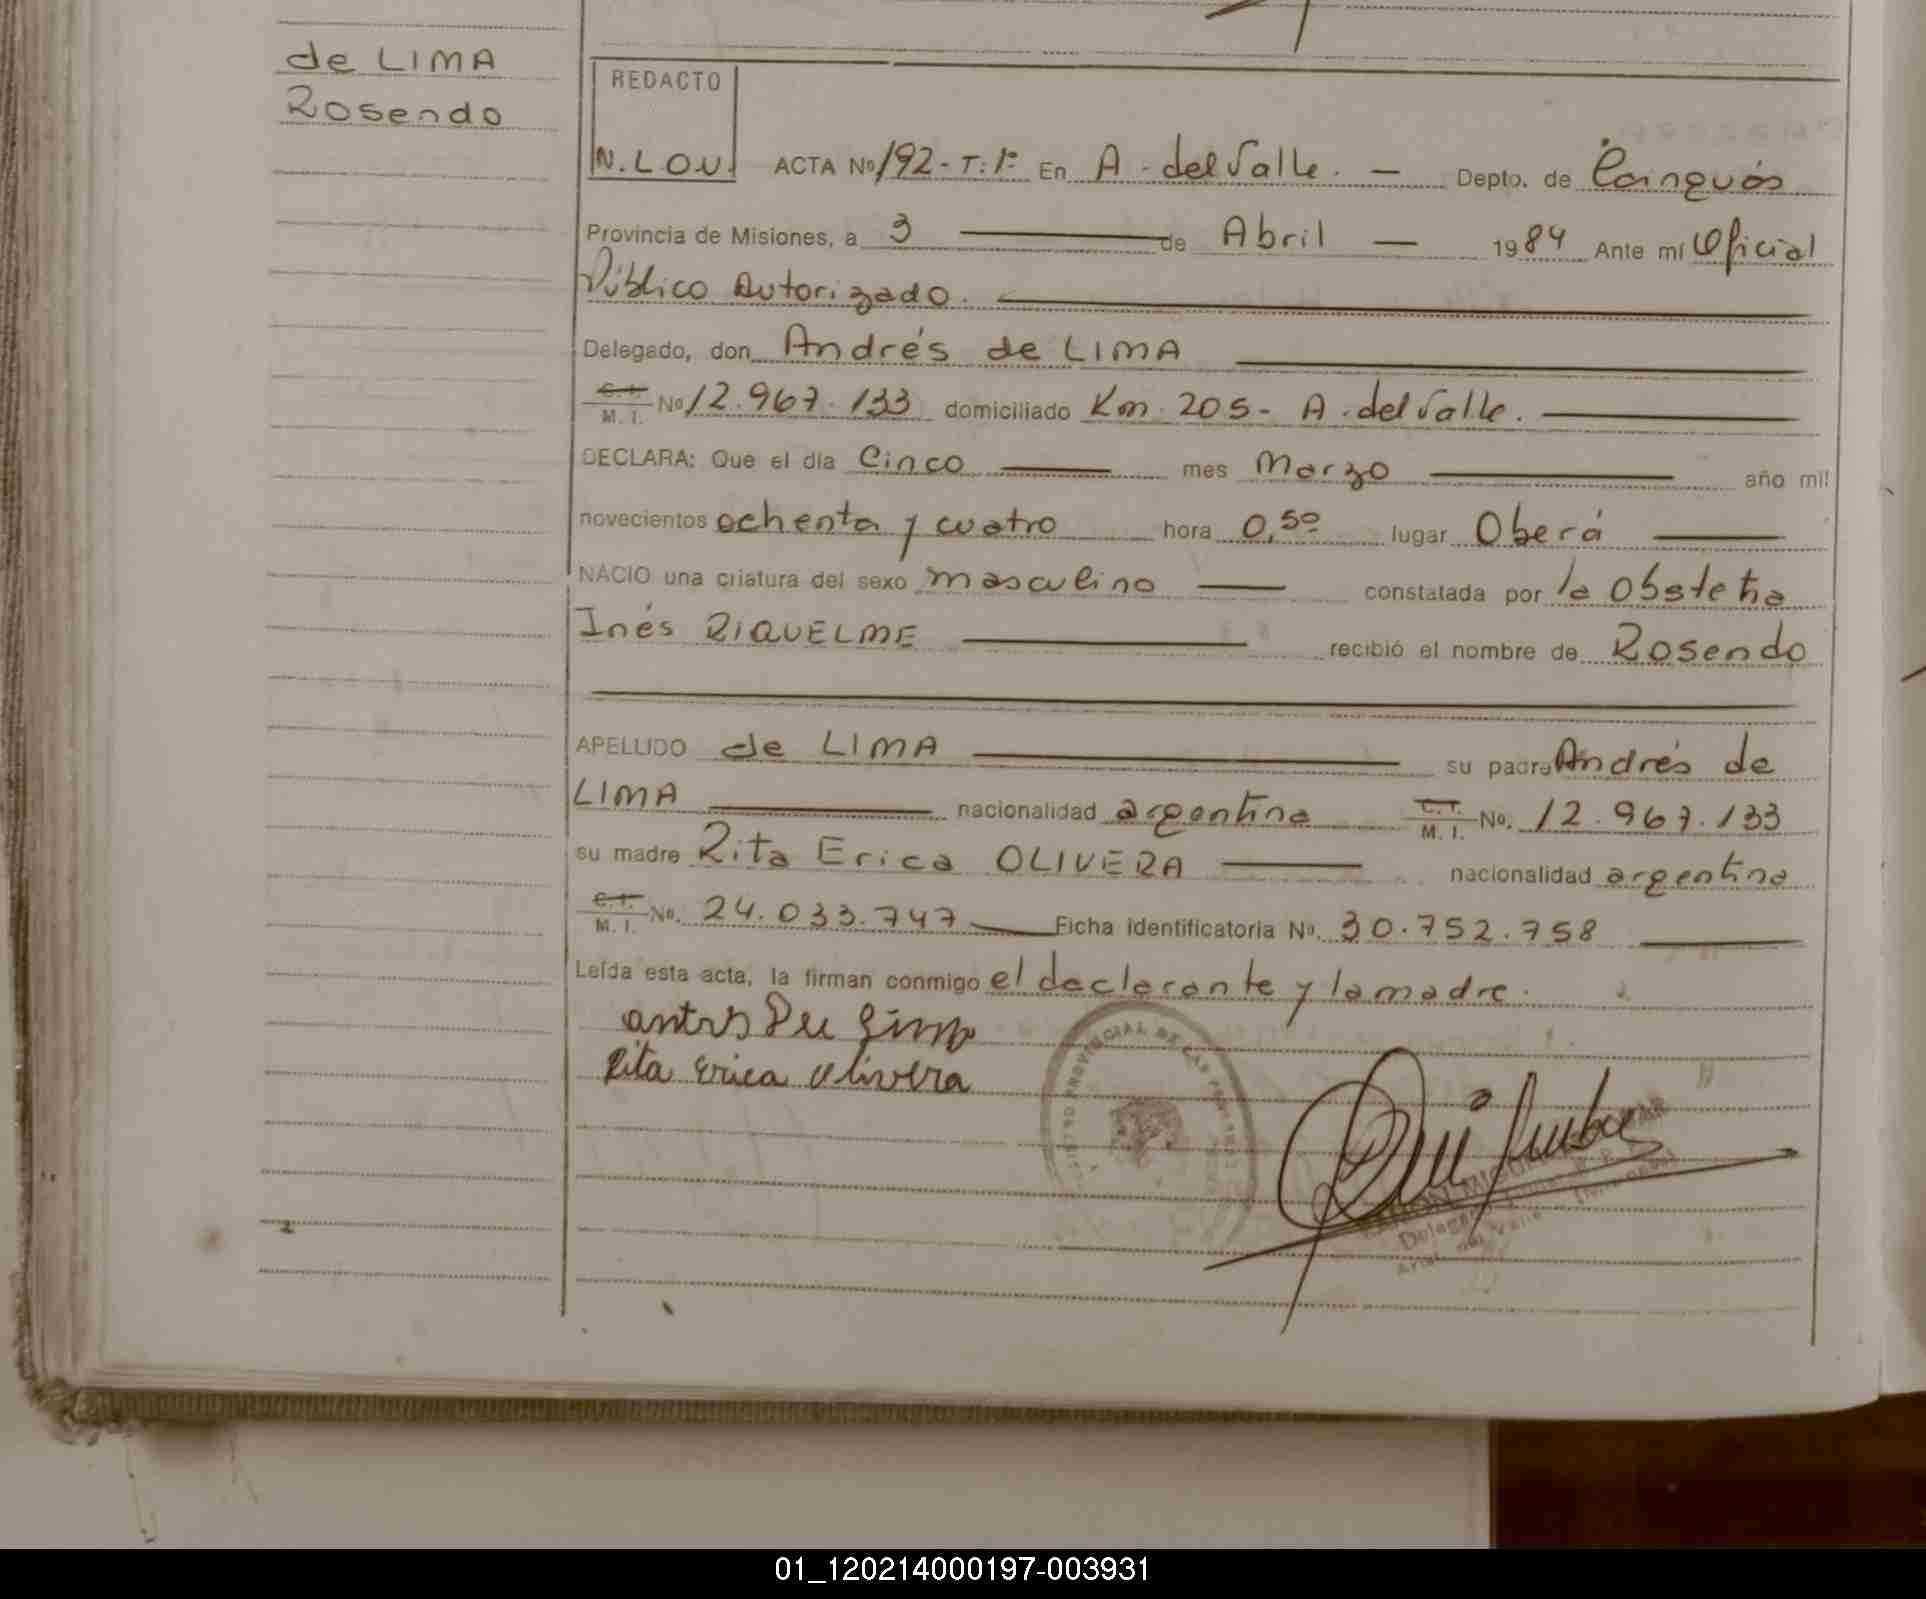 de LIMA
Rosendo
REDACTO
N. L O U.
ACTA Nº 192 - T: 1º En A. del Valle. — Depto. de Cainguás
Provincia de Misiones, a 3 — de Abril — 1984 Ante mí Oficial
Público Autorizado. —
Delegado, don Andrés de LIMA —
C. I. M. I. Nº 12.967.133 domiciliado Km. 205 - A. del Valle. —
DECLARA: Que el día Cinco — mes Marzo — año mil
novecientos ochenta y cuatro hora 0,50 lugar Oberá —
NACIO una criatura del sexo masculino — constatada por la Obstetra
Inés RIQUELME — recibió el nombre de Rosendo
APELLIDO de LIMA — su padre Andrés de
LIMA — nacionalidad argentina C. I. M. I. Nº. 12.967.133
su madre Rita Erica OLIVERA — nacionalidad argentina
C. I. M. I. Nº. 24.033.747 — Ficha identificatoria Nº. 30.752.758 —
Leída esta acta, la firman conmigo el declarante y la madre.
Rita Erica Olivera
PROVINCIAL DE LAS PERSONAS
Delegado
01_120214000197-003931